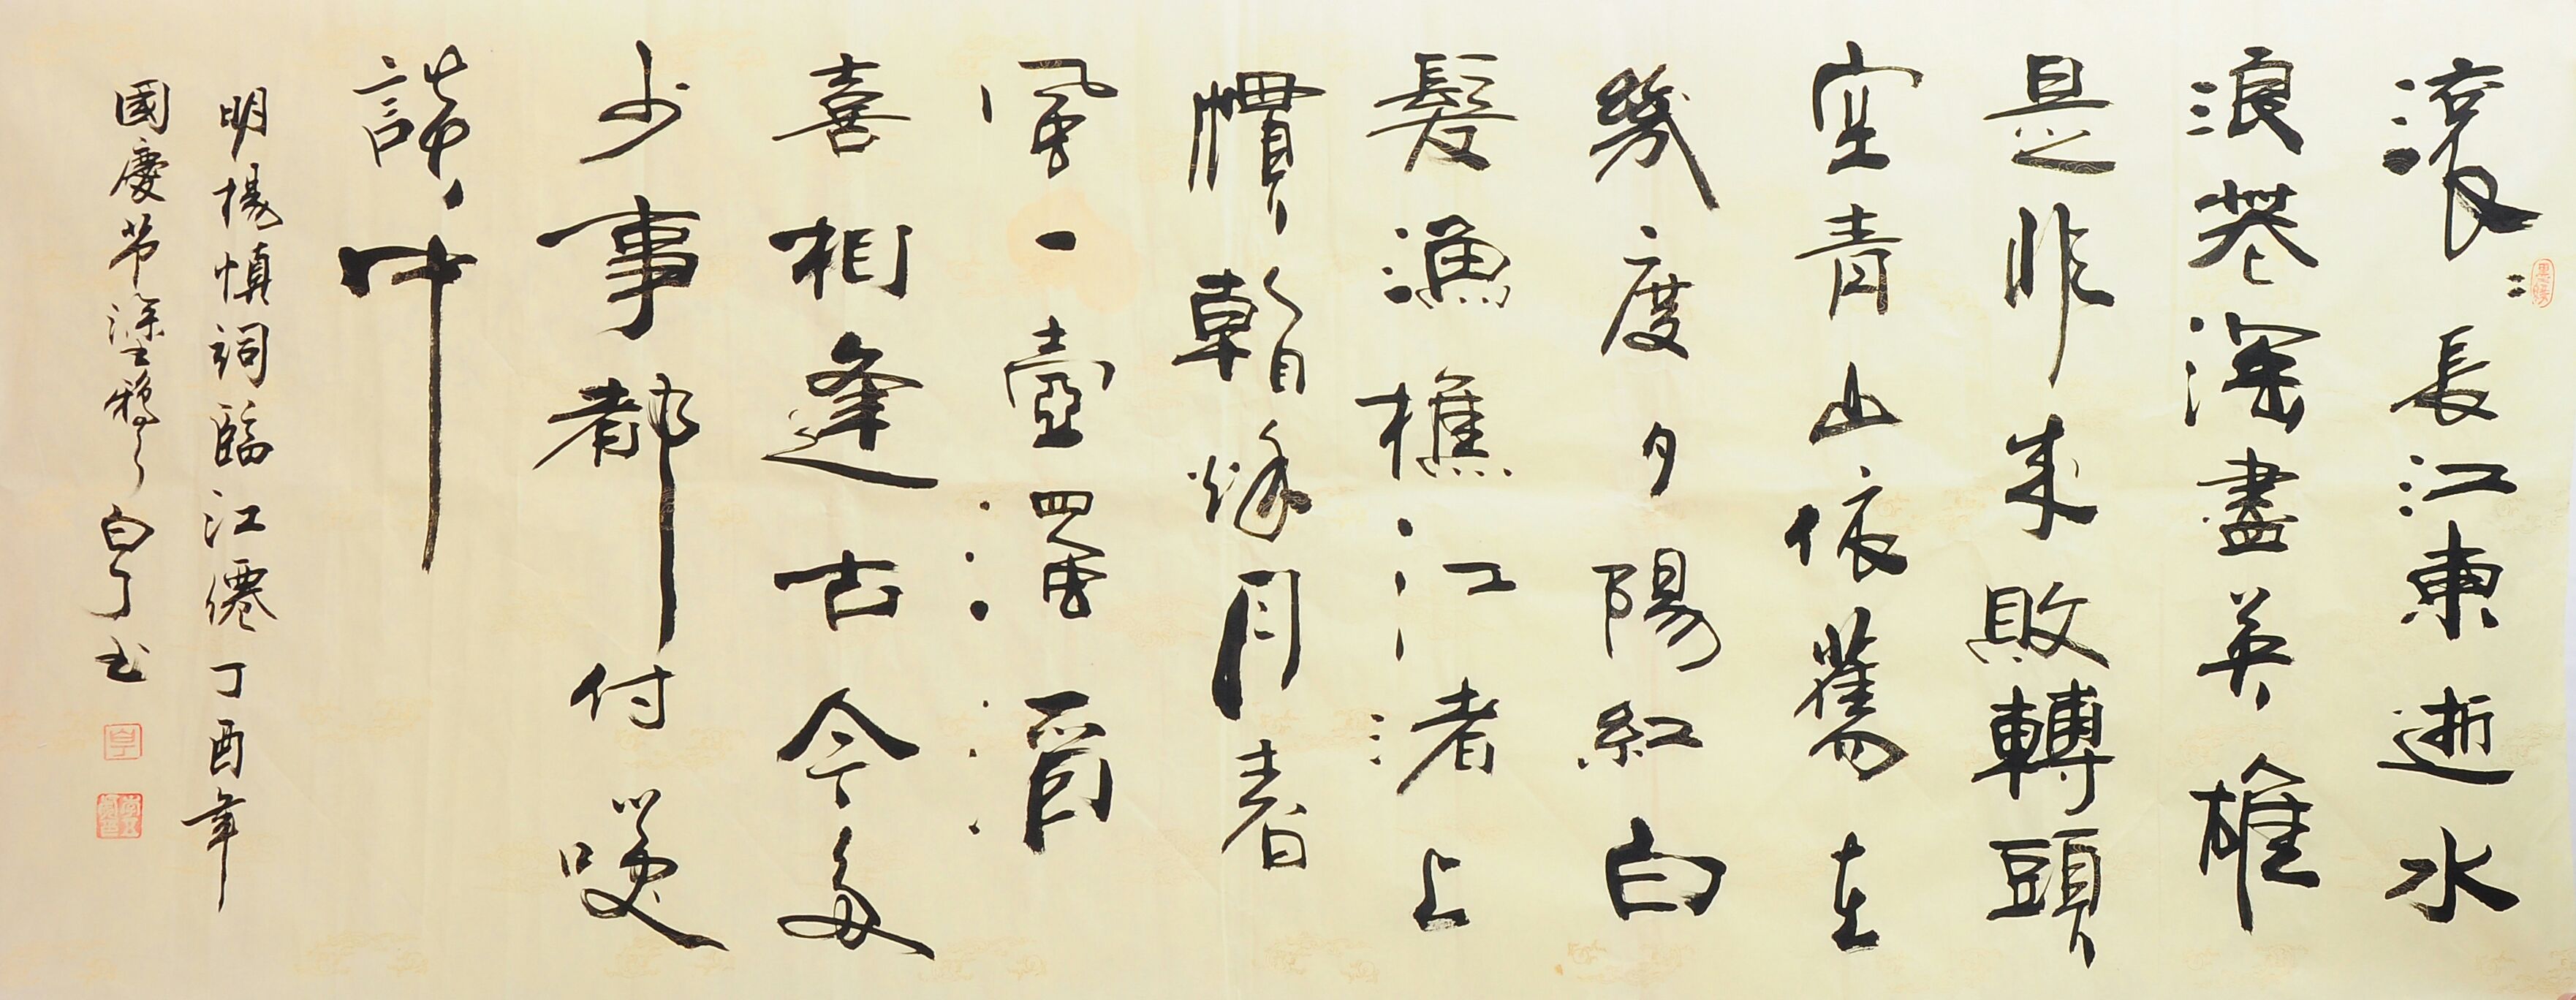 滚〻長江東逝水
浪花淘盡英雄
是非成敗轉頭
空青山依舊在
幾度夕陽紅白
髮漁樵江渚上
慣看秋月春
風一壺濁酒
喜相逢古今多
少事都付咲
談中
明楊慎詞臨江僊丁酉年
國慶节塗鴉 白丁书
白丁